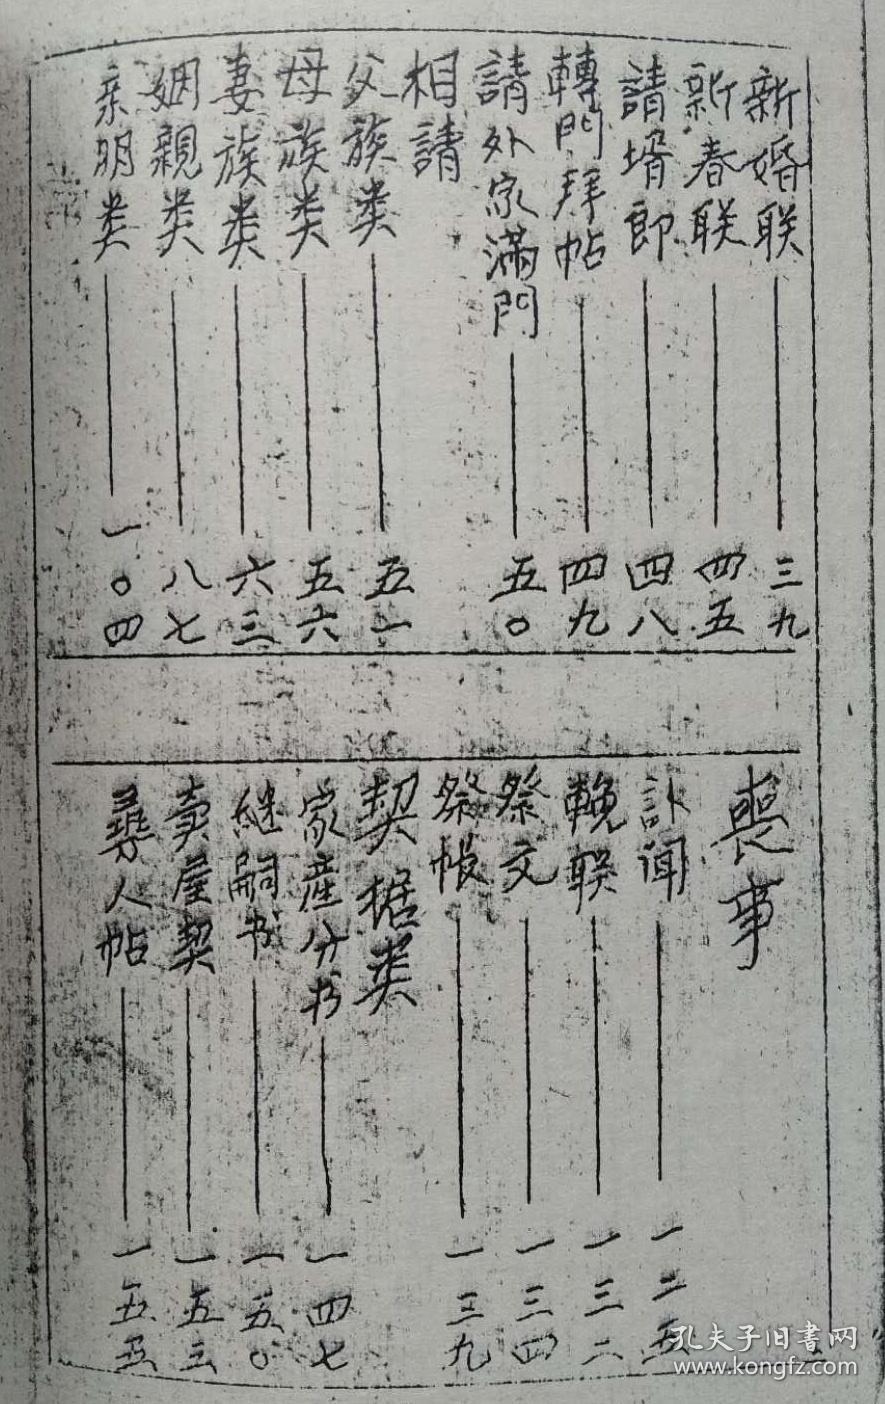 新婚联 三九
新春联 四五
請壻郎 四八
轉門拜帖 四九
請外家滿門 五〇
相請
父族类 五一
母族类 五六
妻族类 六三
姻親类 八七
亲朋类 一〇四
喪事
訃闻 一二五
輓联 一三二
祭文 一三四
祭帳 一三九
契据类
家產分书 一四七
継嗣书 一五〇
卖屋契 一五三
尋人帖 一五五
孔夫子旧書网
www.kongfz.com